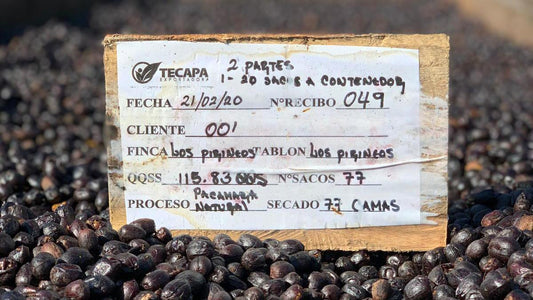 TECAPA
EXPORTADORA
2 PARTES
1-20 SACOS A CONTENEDOR
FECHA 21/02/20 N°RECIBO 049
CLIENTE 001
FINCA LOS PIRINEOS TABLON LOS PIRINEOS
QQSS 115.83 N°SACOS 77
PROCESO PACAMARA NATURAL SECADO 77 CAMAS